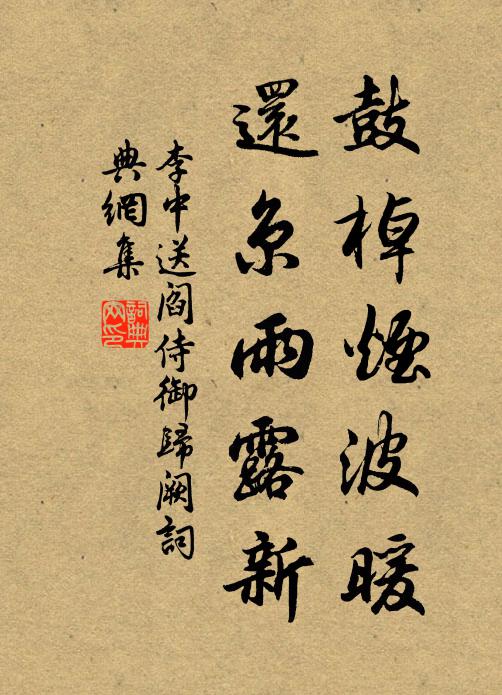 鼓棹煙波暖
還京雨露新
李中送閻侍御歸闕詞
典網集
詞典網印